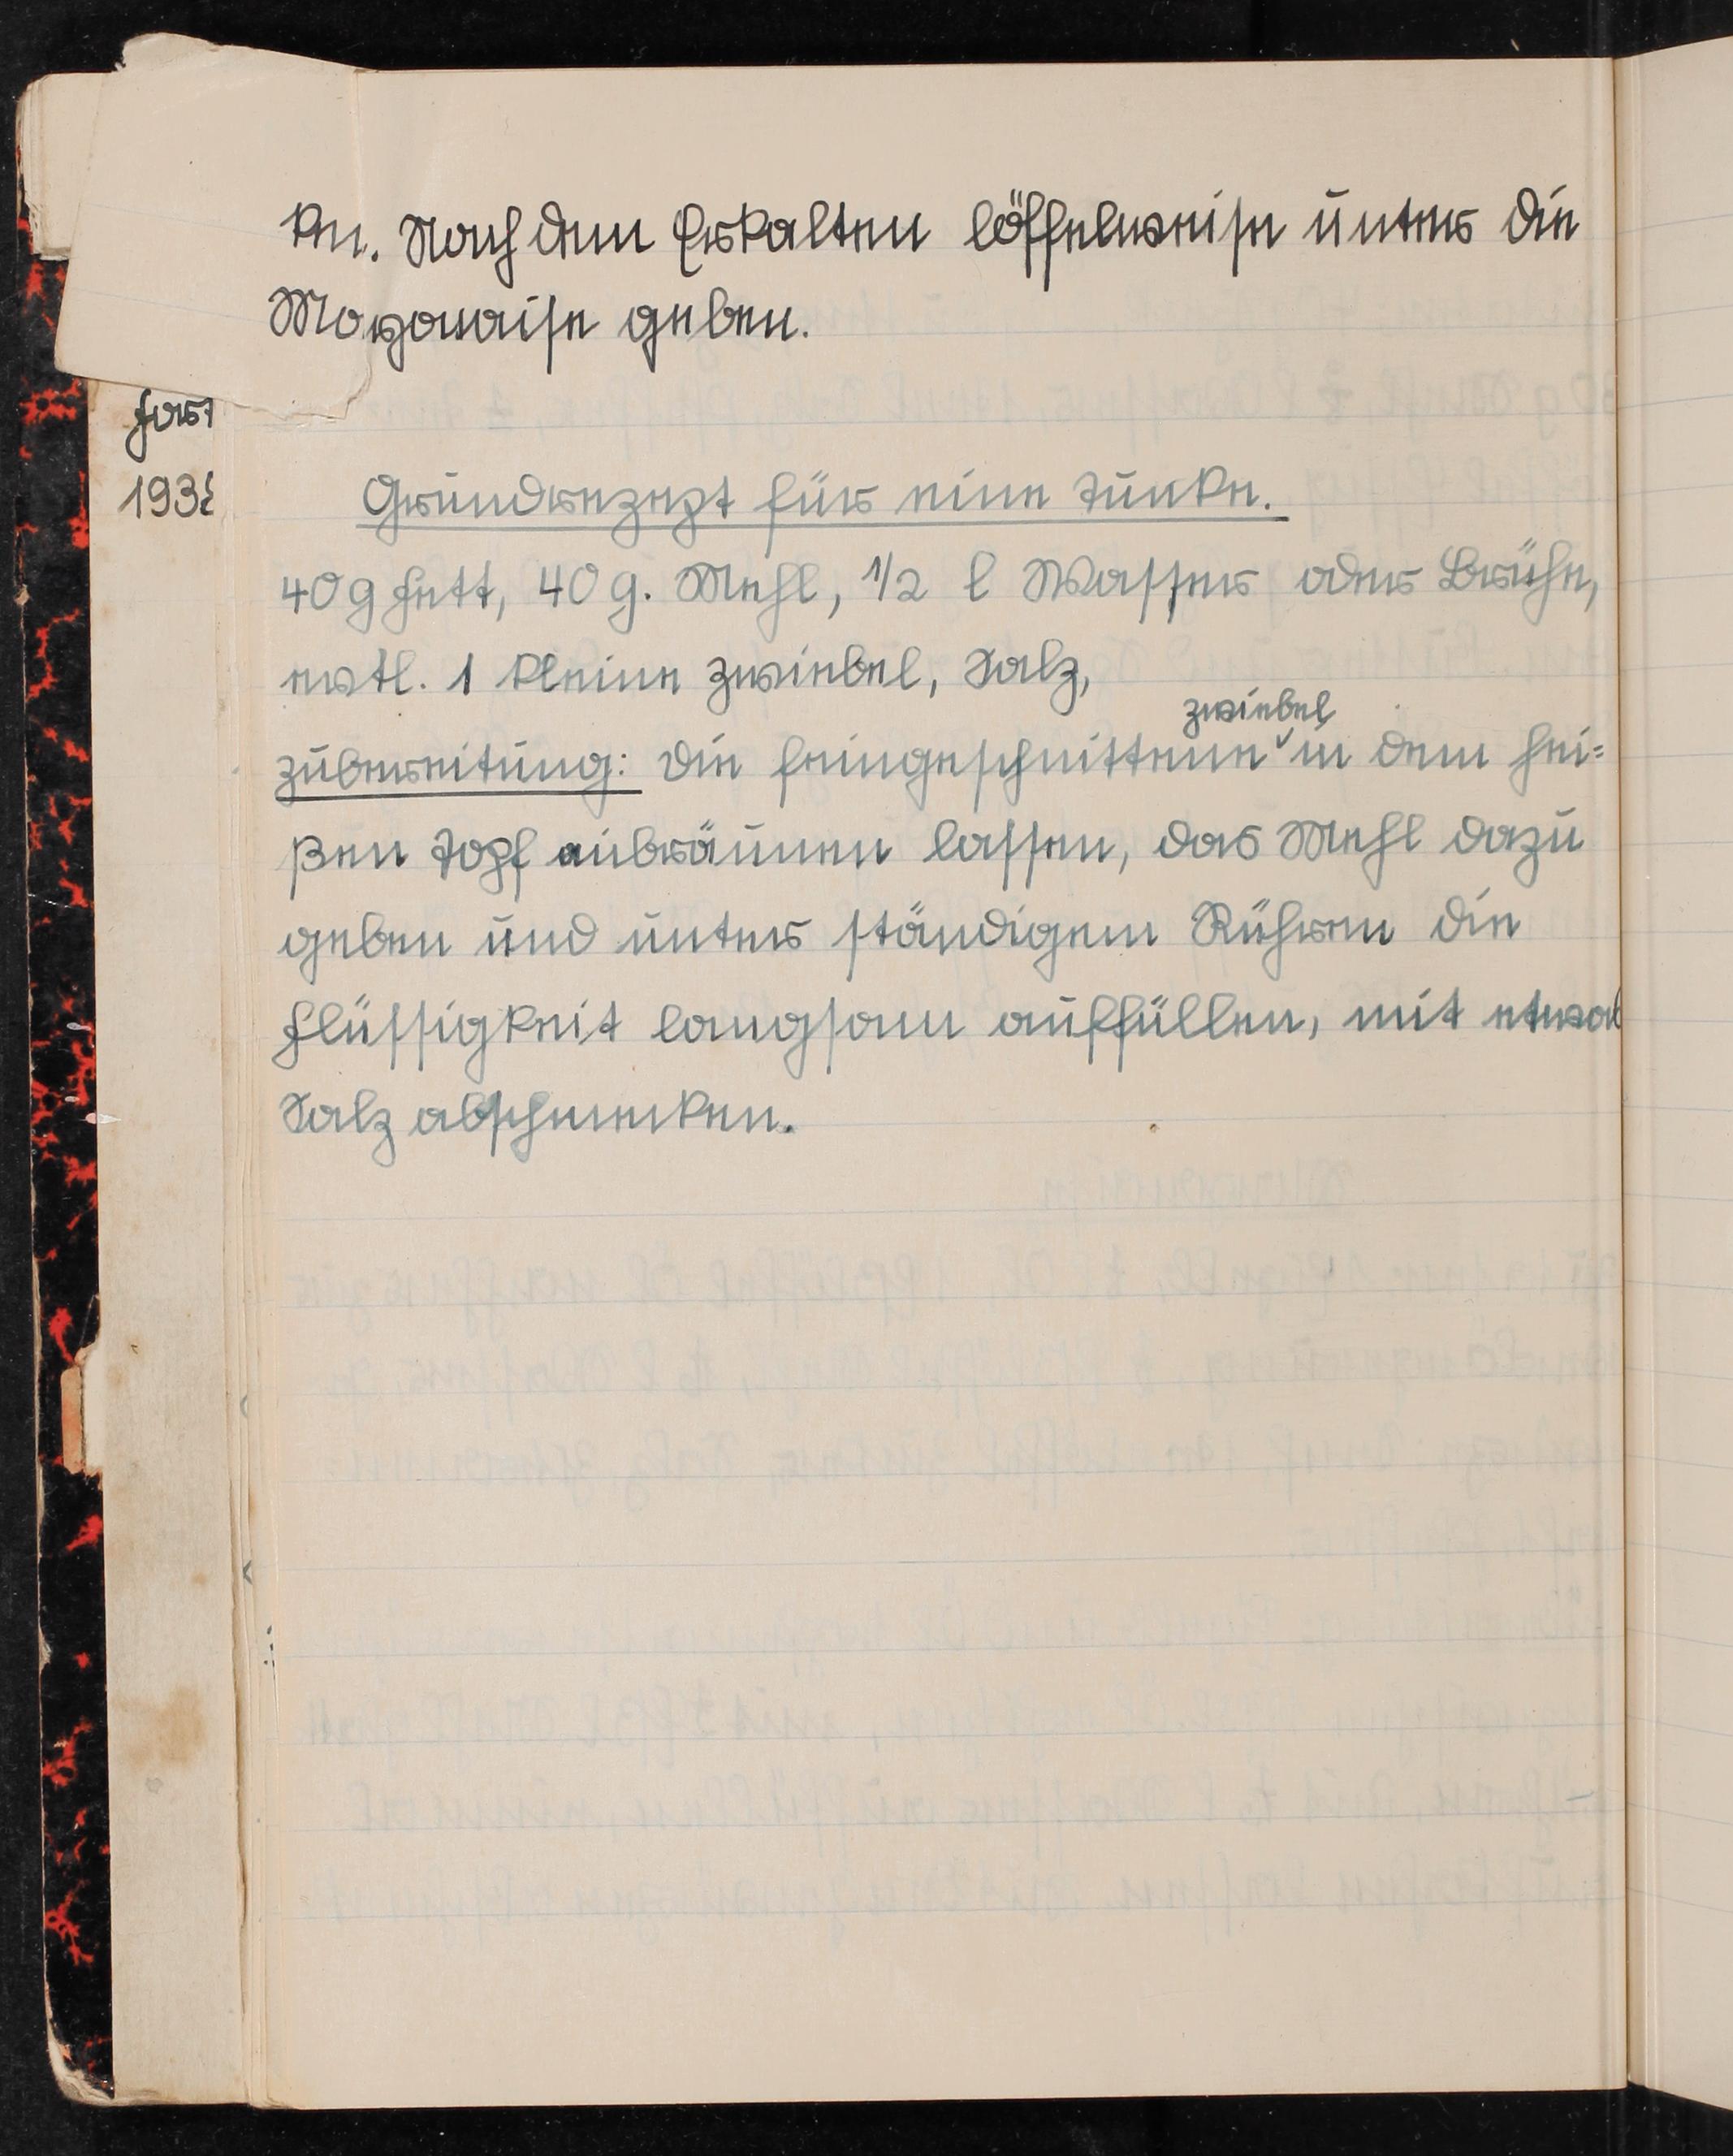 ken. Nach dem Erkalten löffelweise unter die
Mayonaise geben.
193
Grundrezept für eine Tunke.
40 g Fett, 40 g. Mehl, 1/2 l Wasser oder Brühe,
evtl. 1 kleine Zwiebel, Salz,
Zwiebel
Zubereitung: Die feingeschnittene in dem hei=
ßen Topf anbräunen lassen, das Mehl dazu
geben und unter ständigem Rühren die
Flüssigkeit langsam auffüllen, mit etwas
Salz abschmecken.